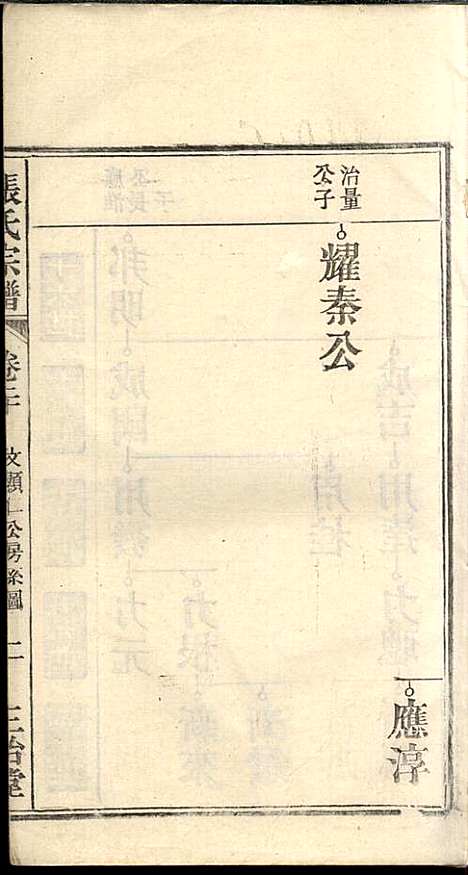 應淳
治量
公子
耀秦公
張氏宗譜
卷二十
文顯仁公房系圖
二
三治堂